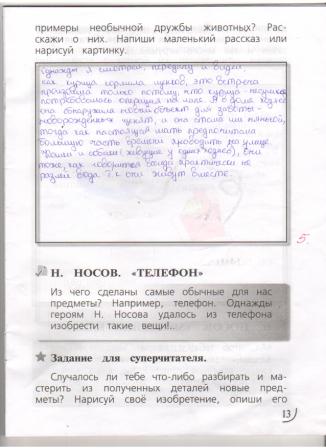 примеры необычной дружбы животных? Рас-
скажи о них. Напиши маленький рассказ или
нарисуй картинку.
Однажды я смотрел передачу и видел,
как курица кормила щенков, эта встреча
произошла только потому, что
потребовалось операция на
она обнаружила новый объект для заботы -
новорождённых щенят, и она стала им нянькой,
тогда как настоящая мать предпочитала
большую часть времени проводить на улице.
Кошки и собаки (живущие у одних хозяев), они
тоже, как говорится всегда практически не
разлей вода. Т.к они живут вместе.
5.
Н. НОСОВ. «ТЕЛЕФОН»
Из чего сделаны самые обычные для нас
предметы? Например, телефон. Однажды
героям Н. Носова удалось из телефона
изобрести такие вещи!..
★ Задание для суперчитателя.
Случалось ли тебе что-либо разбирать и ма-
стерить из полученных деталей новые пред-
меты? Нарисуй своё изобретение, опиши его
13